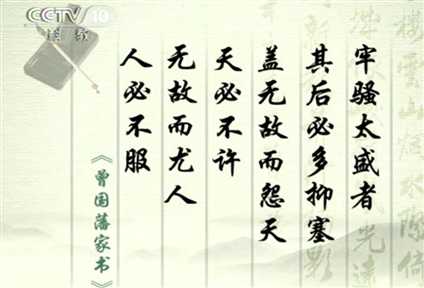 CCTV 10
科教
牢骚太盛者
其后必多抑塞
盖无故而怨天
天必不许
无故而尤人
人必不服
《曾国藩家书》